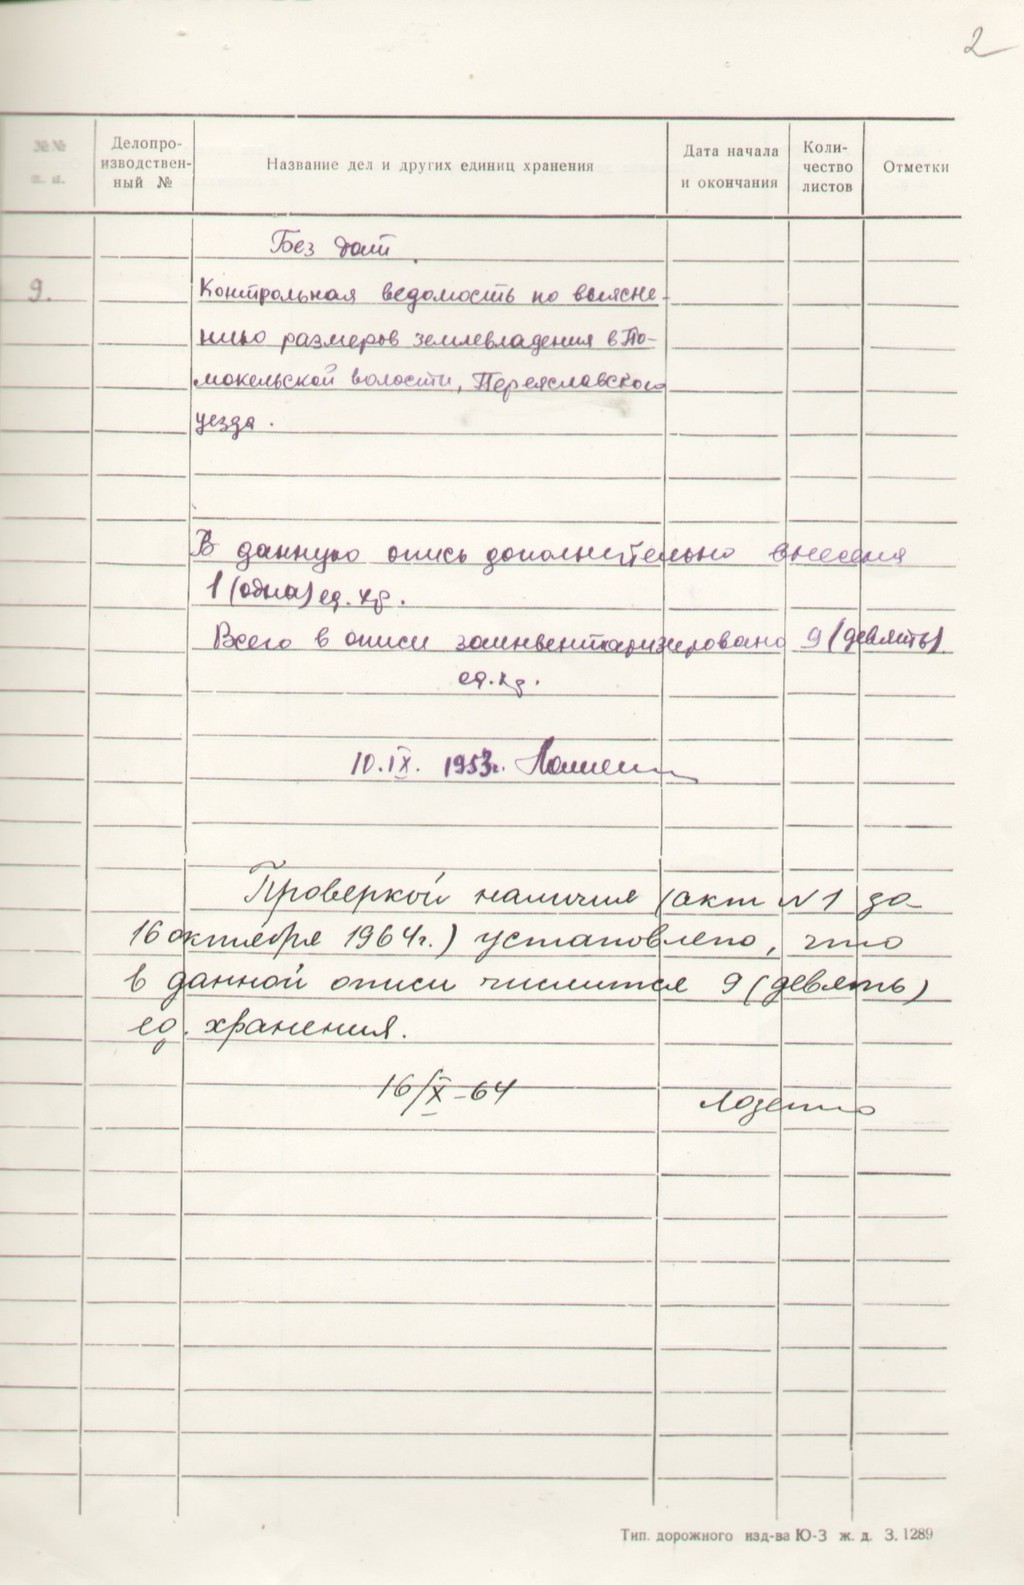 2
№№ п. п.
Делопро-
изводствен-
ный №
Название дел и других единиц хранения
Дата начала
и окончания
Коли-
чество
листов
Отметки
Без дат.
9.
Контрольная ведомость по выясне-
нию размеров землевладения в По-
мокельской волости, Переяславского
уезда.
В данную опись дополнительно внесена
1 (одна) ед. хр.
Всего в описи заинвентаризировано 9 (девять)
ед. хр.
10.IX. 1953г.
Проверкой наличия (акт N 1 за
16 октября 1964г.) установлено, что
в данной описи числится 9 (девять)
ед. хранения.
16/X-64
Тип. дорожного изд-ва Ю-З ж. д. З. 1289